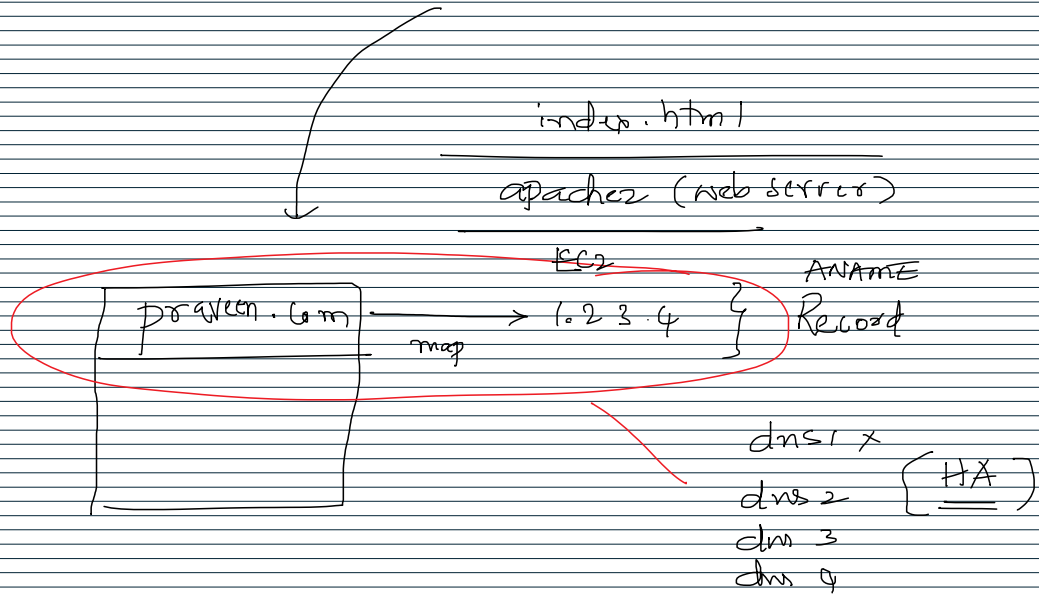 index.html
apache2 (web server)
EC2
ANAME
praveen.com map 1.2 3.4 } Record
dns1 x
dns 2 [HA)
dns 3
dns 4